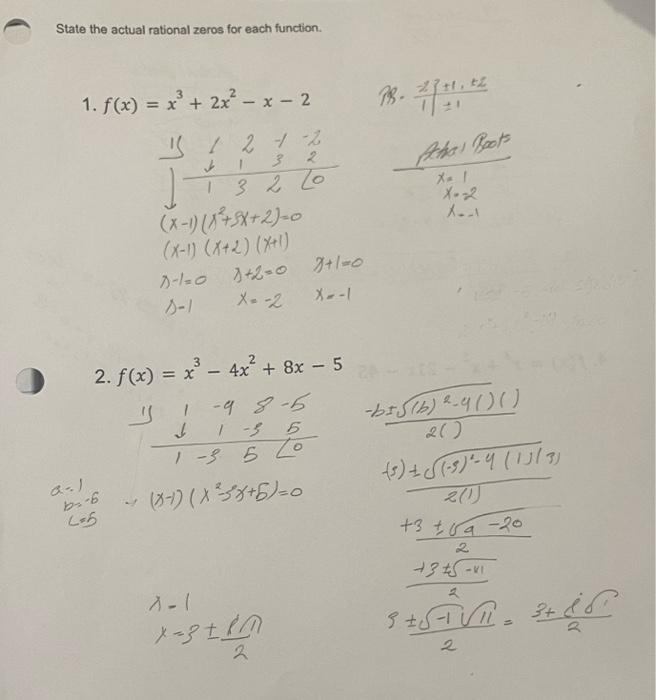 State the actual rational zeros for each function.
1. f(x) = x³ + 2x² − x − 2
1 2 -1 -2
↓ 1 3 2
1 3 2 0
(x-1)(x²+3x+2)=0
(x-1) (x+2) (x+1)
x-1=0 x+2=0 x+1=0
x=1 x=-2 x=-1
-2 ±1, ±2
1 ±1
Actual Roots
x=1
x=-2
x=-1
2. f(x) = x³ − 4x² + 8x − 5
1 -4 8 -5
↓ 1 -3 5
1 -3 5 0
a=1
(x-1) (x²-3x+5)=0
c=5
x=1
x=3±i√11
2
-b±√(b)²-4()()
2()
2(1)
+3 ±√9-20
2
+3±√-11
2
3±√-1√11 =
2
2